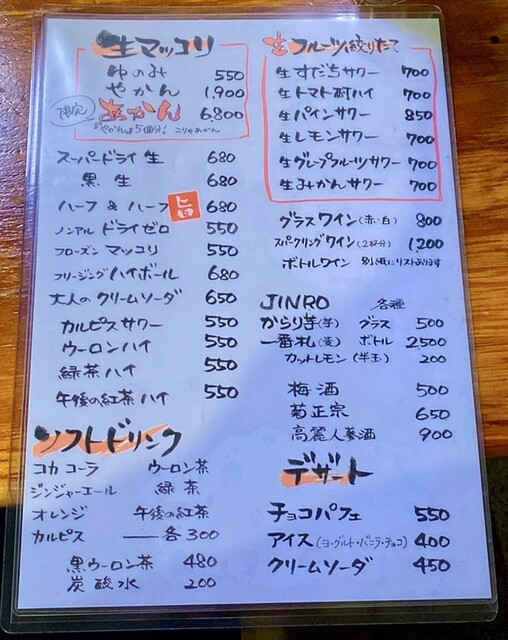 生マッコリ
ゆのみ 550
やかん 1,900
限定 あかん 6,800
やかんの5個分! こりゃあかん
スーパードライ 生 680
黒 生 680
ハーフ & ハーフ 旨 680
ノンアル ドライゼロ 550
フローズン マッコリ 550
フリージング ハイボール 680
大人の クリームソーダ 650
カルピス サワー 550
ウーロン ハイ 550
緑茶 ハイ 550
午後の紅茶 ハイ 550
ソフトドリンク
コカ コーラ ウーロン茶
ジンジャーエール 緑 茶
オレンジ 午後の紅茶
カルピス ― 各300
黒ウーロン茶 480
炭酸水 200
生 フルーツ絞りたて
生 すだちサワー 700
生 トマト酎ハイ 700
生 パインサワー 850
生 レモンサワー 700
生 グレープフルーツサワー 700
生 みかんサワー 700
グラスワイン(赤・白) 800
スパークリングワイン(2杯分) 1,200
ボトルワイン 別紙にリストあります
JINRO 各種
からり芋(芋) グラス 500
一番札(麦) ボトル 2,500
カットレモン(半玉) 200
梅酒 500
菊正宗 650
高麗人蔘酒 900
デザート
チョコパフェ 550
アイス(ヨーグルト・バニラ・チョコ) 400
クリームソーダ 450